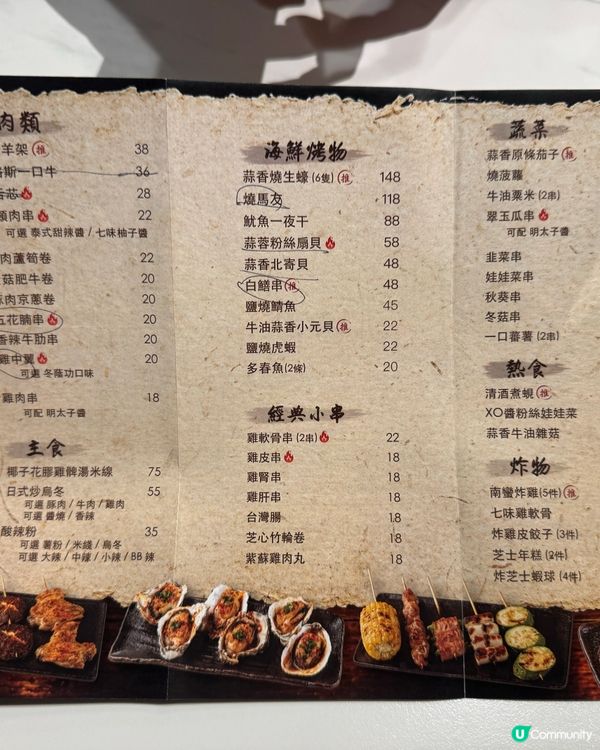 肉類
羊架 推 38
一口牛 36
28
肉串 22
可選 泰式甜辣醬 / 七味柚子醬
肉蘆筍卷 22
菇肥牛卷 20
肉京蔥卷 20
五花腩串 20
香辣牛肋串 20
雞中翼 20
可選 冬蔭功口味
雞肉串 18
可配 明太子醬
主食
椰子花膠雞髀湯米線 75
日式炒烏冬 55
可選 豚肉 / 牛肉 / 雞肉
可選 醬燒 / 香辣
酸辣粉 35
可選 薯粉 / 米綫 / 烏冬
可選 大辣 / 中辣 / 小辣 / BB 辣
海鮮烤物
蒜香燒生蠔 (6隻) 推 148
燒馬友 118
魷魚一夜干 88
蒜蓉粉絲扇貝 58
蒜香北寄貝 48
白鱔串 推 48
鹽燒鯖魚 45
牛油蒜香小元貝 推 22
鹽燒虎蝦 22
多春魚(2條) 20
經典小串
雞軟骨串 (2串) 22
雞皮串 18
雞腎串 18
雞肝串 18
台灣腸 18
芝心竹輪卷 18
紫蘇雞肉丸 18
蔬菜
蒜香原條茄子 推
燒菠蘿
牛油粟米 (2串)
翠玉瓜串
可配 明太子醬
韭菜串
娃娃菜串
秋葵串
冬菇串
一口蕃薯 (2串)
熱食
清酒煮蜆 推
XO醬粉絲娃娃菜
蒜香牛油雜菇
炸物
南蠻炸雞(5件) 推
七味雞軟骨
炸雞皮餃子 (3件)
芝士年糕 (2件)
炸芝士蝦球 (4件)
U Community